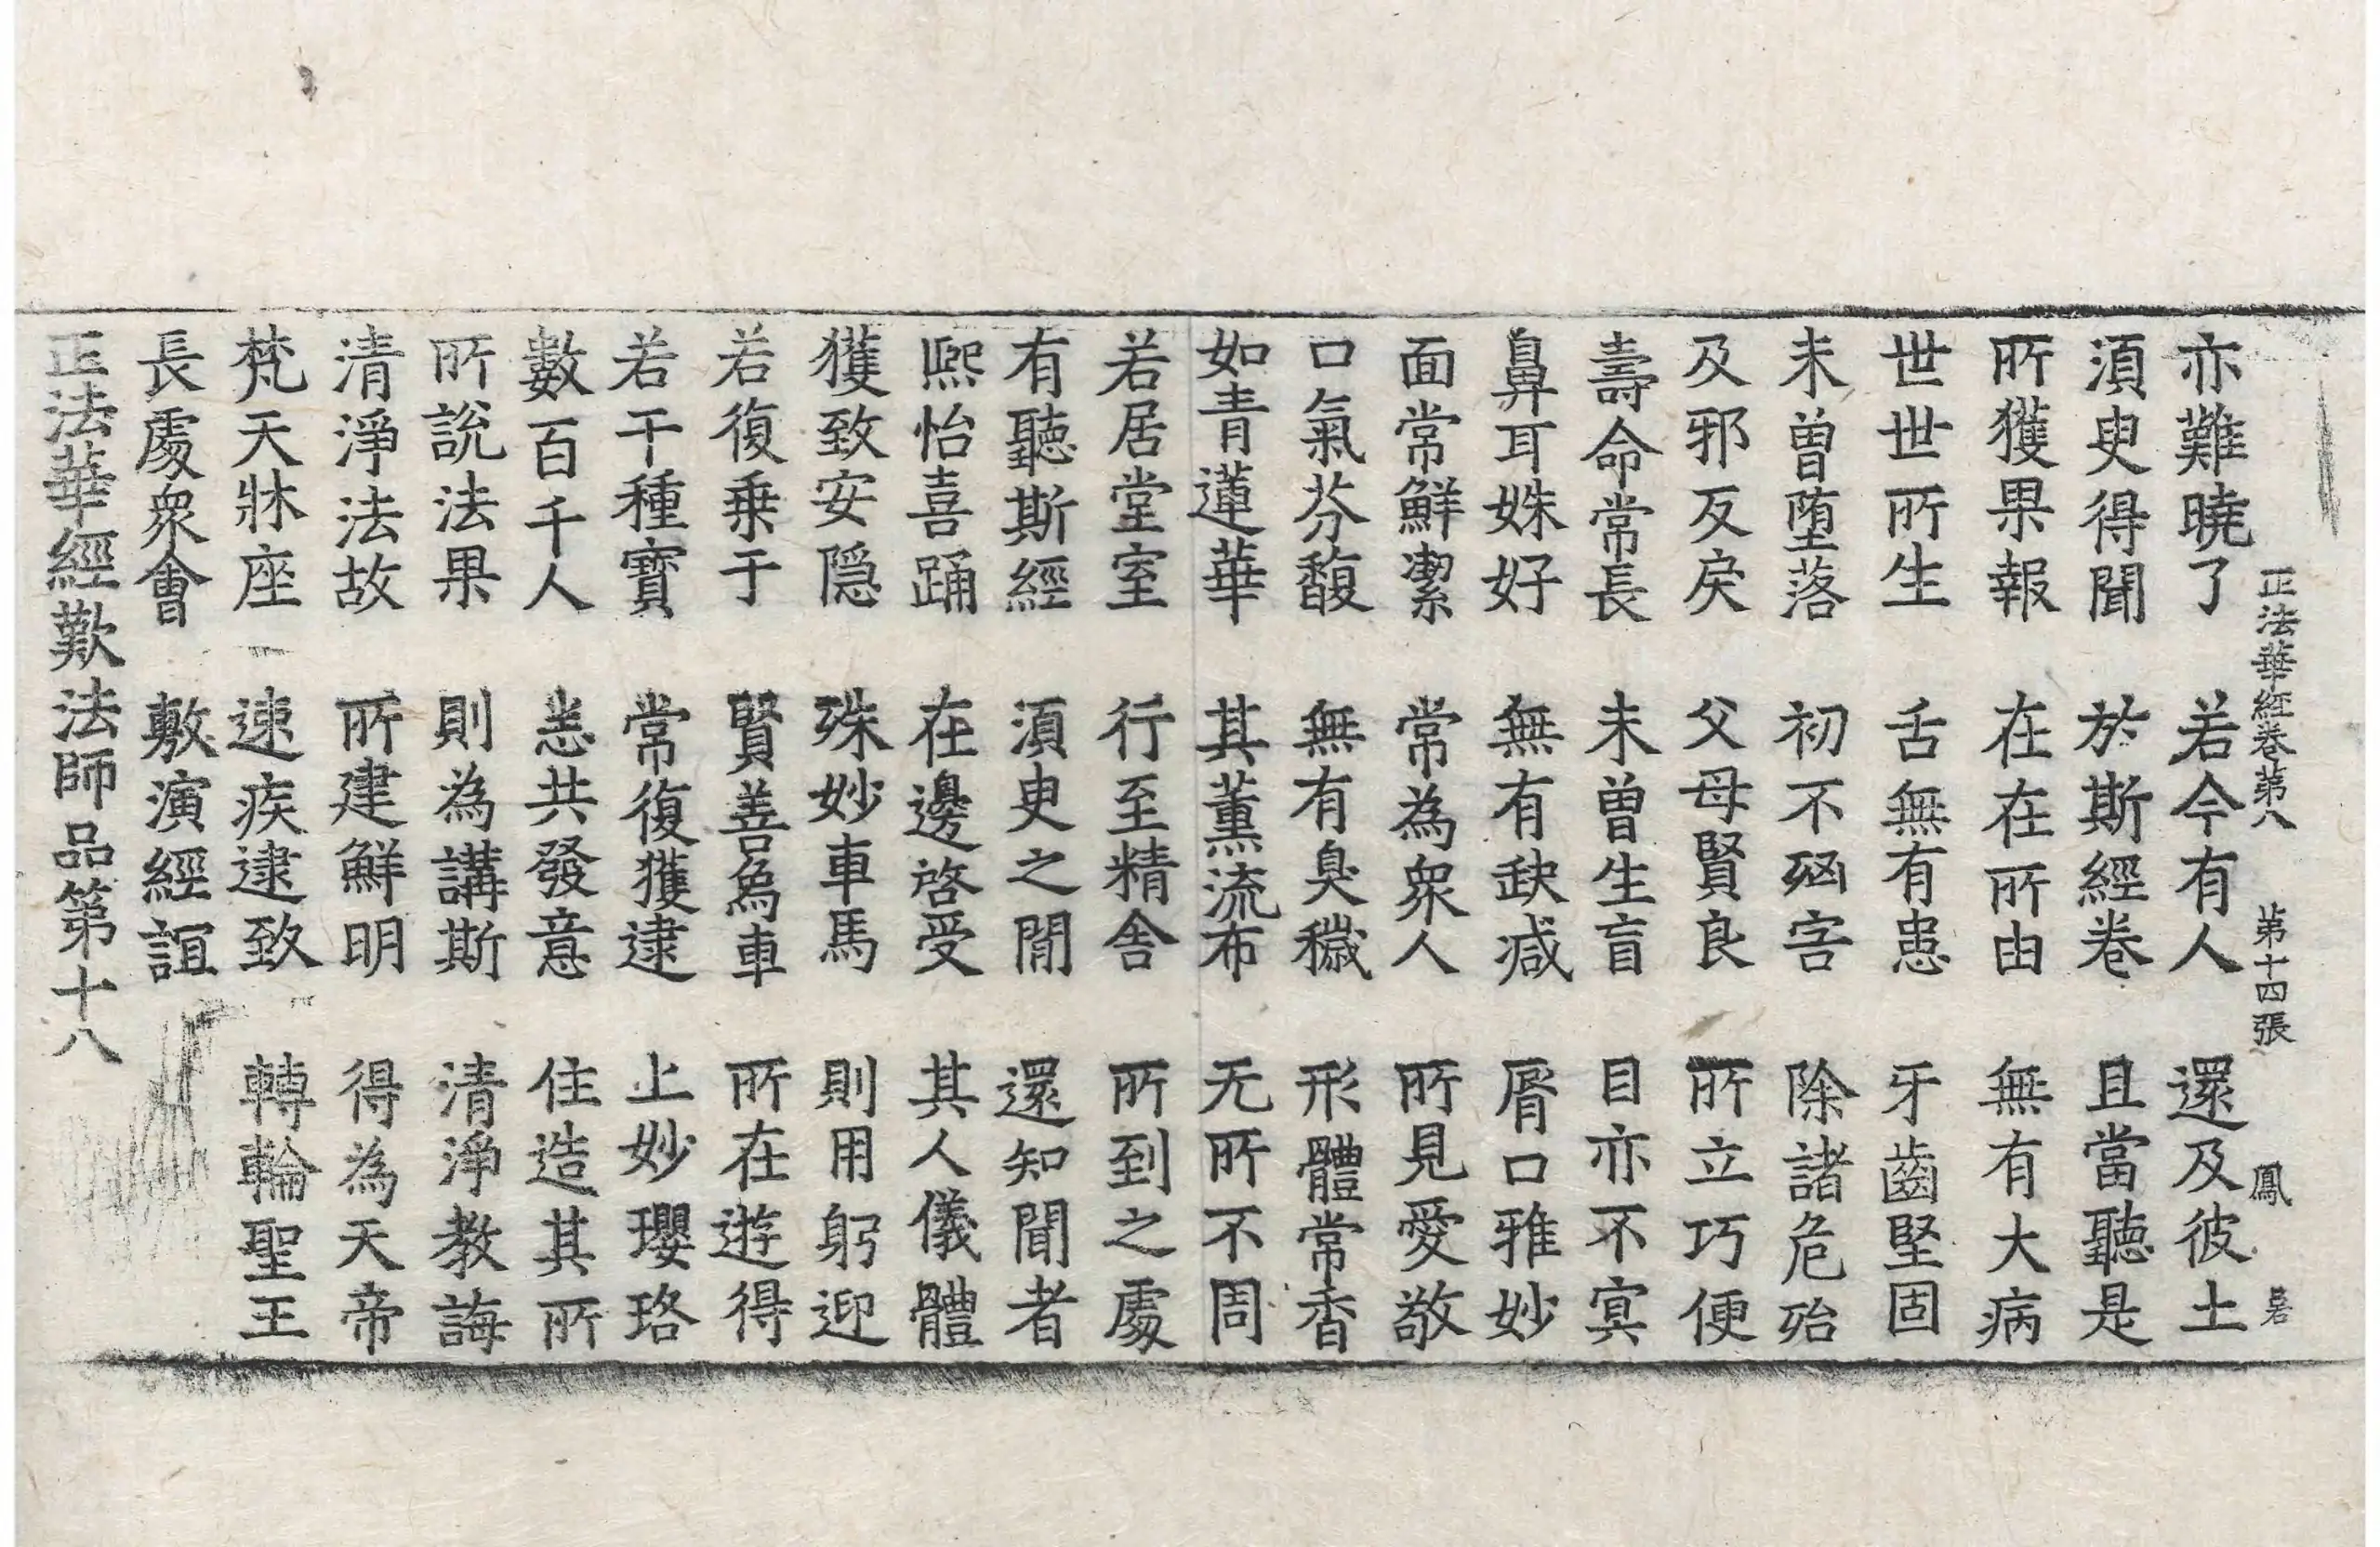 正法華經卷第八 第十四張 鳳
亦難曉了 若今有人 還及彼土
須臾得聞 於斯經卷 且當聽是
所獲果報 在在所由 無有大病
世世所生 舌無有患 牙齒堅固
未曾墮落 初不凶害 除諸危殆
及邪反戾 父母賢良 所立巧便
壽命常長 未曾生盲 目亦不冥
鼻耳姝好 無有缺減 脣口雅妙
面常鮮潔 常為眾人 所見愛敬
口氣芬馥 無有臭穢 形體常香
如青蓮華 其薰流布 无所不周
若居堂室 行至精舍 所到之處
有聽斯經 須臾之間 還知聞者
熙怡喜踊 在邊啓受 其人儀體
獲致安隱 殊妙車馬 則用躬迎
若復乘于 賢善象車 所在遊得
若干種寶 常復獲逮 上妙瓔珞
數百千人 恙共發意 住造其所
所說法果 則為講斯 清淨教誨
清淨法故 所建鮮明 得為天帝
梵天牀座 速疾逮致 轉輪聖王
長處眾會 敷演經誼
正法華經歎法師品第十八